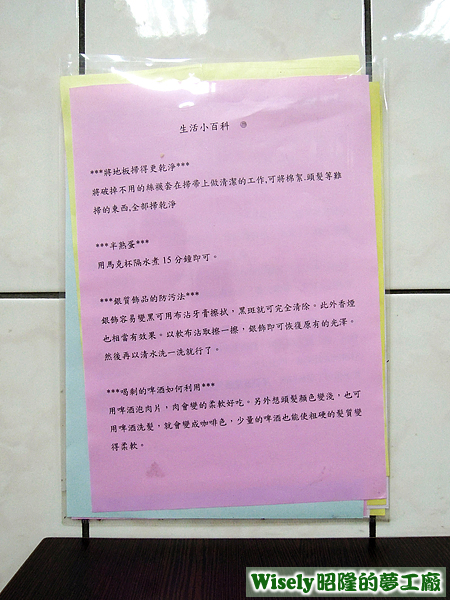 生活小百科
***將地板掃得更乾淨***
將破掉不用的絲襪套在掃帚上做清潔的工作,可將棉絮.頭髮等難
掃的東西,全部掃乾淨
***半熟蛋***
用馬克杯隔水煮 15 分鐘即可。
***銀質飾品的防污法***
銀飾容易變黑可用布沾牙膏擦拭，黑斑就可完全清除。此外香煙
也相當有效果。以軟布沾取擦一擦，銀飾即可恢復原有的光澤。
然後再以清水洗一洗就行了。
***喝剩的啤酒如何利用***
用啤酒泡肉片，肉會變的柔軟好吃。另外想頭髮顏色變淺，也可
用啤酒洗髮，就會變成咖啡色，少量的啤酒也能使粗硬的髮質變
得柔軟。
Wisely昭隆的夢工廠